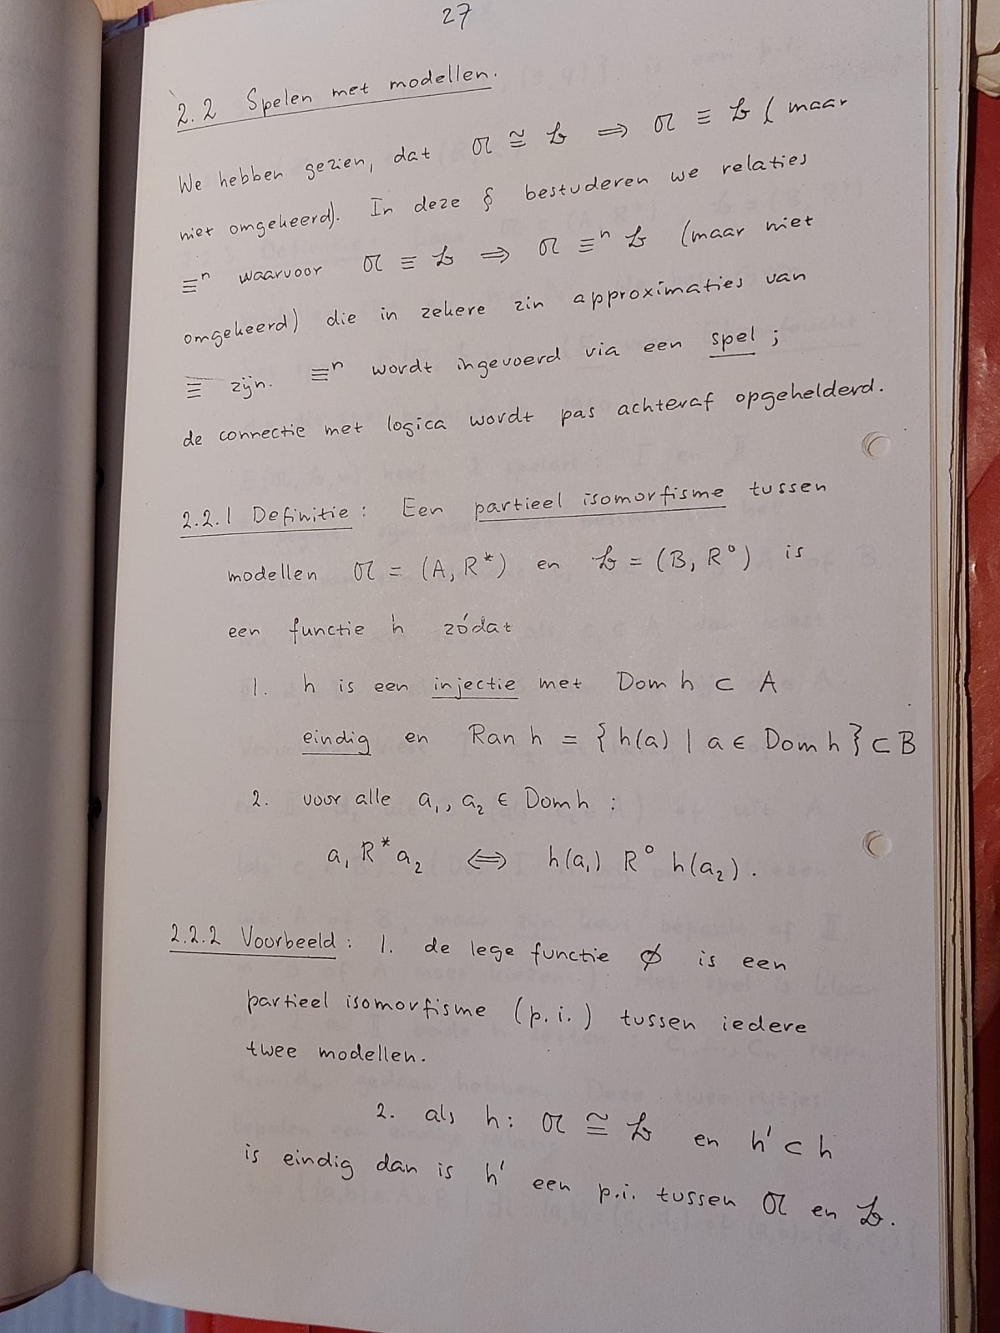 27
2.2 Spelen met modellen.
We hebben gezien, dat 𝔄 ≅ 𝔅 ⟹ 𝔄 ≡ 𝔅 ( maar
niet omgekeerd). In deze § bestuderen we relaties
≡ⁿ waarvoor 𝔄 ≡ 𝔅 ⟹ 𝔄 ≡ⁿ 𝔅 (maar niet
omgekeerd) die in zekere zin approximaties van
≡ zijn. ≡ⁿ wordt ingevoerd via een spel ;
de connectie met logica wordt pas achteraf opgehelderd.
2.2.1 Definitie : Een partieel isomorfisme tussen
modellen 𝔄 = (A, R*) en 𝔅 = (B, R°) is
een functie h zódat
1. h is een injectie met Dom h ⊂ A
eindig en Ran h = { h(a) | a ∈ Dom h } ⊂ B
2. voor alle a₁, a₂ ∈ Dom h :
a₁ R* a₂ ⟺ h(a₁) R° h(a₂) .
2.2.2 Voorbeeld : 1. de lege functie ∅ is een
partieel isomorfisme (p.i.) tussen iedere
twee modellen.
2. als h : 𝔄 ≅ 𝔅 en h' ⊂ h
is eindig dan is h' een p.i. tussen 𝔄 en 𝔅.